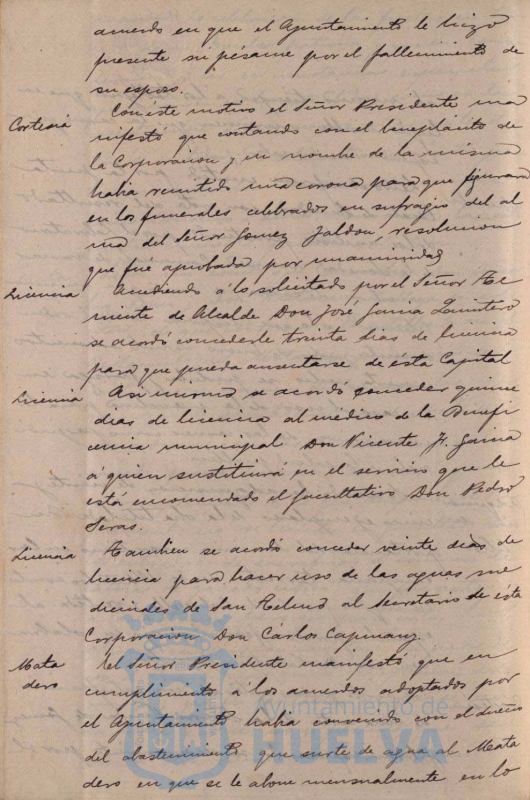 acuerdo en que el Ayuntamiento le hizo
presente su pésame por el fallecimiento de
su esposo.
Cortesia
Con este motivo el Señor Presidente ma
nifestó que contando con el beneplácito de
la Corporacion y en nombre de la misma
habia remitido una corona para que figurara
en los funerales celebrados en sufragio del al
ma del Señor Gomez Jaldon, resolucion
que fué aprobada por unanimidad
Licencia
Accediendo á lo solicitado por el Señor Te
niente de Alcalde Don José Garcia Quintero
se acordó concederle treinta dias de licencia
para que pueda ausentarse de ésta Capital
Licencia
Asi mismo se acordó conceder quince
dias de licencia al médico de la Benefi
cencia municipal Don Vicente F. Garcia
á quien sustituirá en el servicio que le
está encomendado el facultativo Don Pedro
Seras.
Licencia
Tambien se acordó conceder veinte dias de
licencia para hacer uso de las aguas me
dicinales de San Telmo al Secretario de ésta
Corporacion Don Cárlos Capmany.
Mata
dero
El Señor Presidente manifestó que en
cumplimiento á los acuerdos adoptados por
el Ayuntamiento habia convenido con el dueño
del abastecimiento que surte de agua al Mata
dero en que se le abone mensualmente en lo
Ayuntamiento de
HUELVA